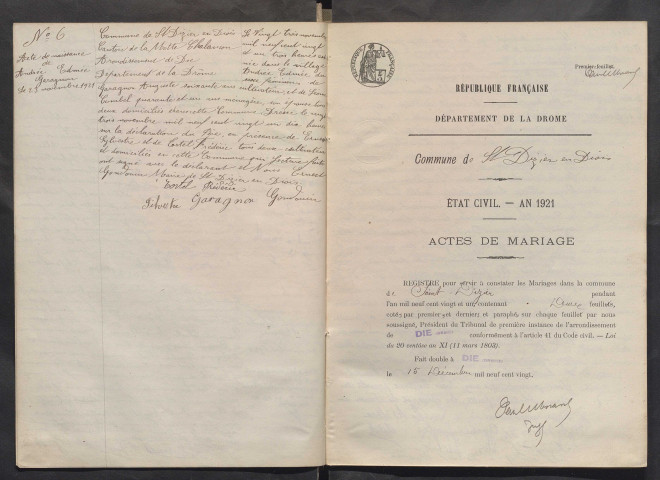 No 6
Acte de naissance
de
Andrée Edmée
Garagnon
le 23 novembre 1921
Commune de St Dizier en Diois
Canton de la Motte Chalancon
Arrondissement de Die
Département de la Drôme
Le vingt trois novembre
mil neuf cent vingt
et un trois heures
née dans le village
Andrée Edmée du
sexe féminin de
Garagnon Auguste cultivateur et de
quarante et un ans ménagère, son épouse
domiciliés Commune Dressé le vingt
trois novembre mil neuf cent vingt un dix heures
sur la déclaration du Père en présence de
Sylvestre et de Tortel Frédéric tous deux cultivateurs
et domiciliés en cette Commune qui, lecture faite
ont signé avec le déclarant et Nous Ernest
Gondouin Maire de St Dizier en Diois
Tortel Frédéric
Silvestre Garagnon Gondouin
Premier feuillet.
RÉPUBLIQUE FRANÇAISE
DÉPARTEMENT DE LA DROME
Commune de St Dizier en Diois
ÉTAT CIVIL. — AN 1921
ACTES DE MARIAGE
REGISTRE pour servir à constater les Mariages dans la commune
de Saint Dizier pendant
l'an mil neuf cent vingt et un, contenant feuillets,
cotés par premier et dernier, et paraphés sur chaque feuillet par nous
soussigné, Président du Tribunal de première instance de l'arrondissement
de DIE conformément à l'article 41 du Code civil. — Loi
du 20 ventôse an XI (11 mars 1803).
Fait double à DIE
le 15 Décembre mil neuf cent vingt.